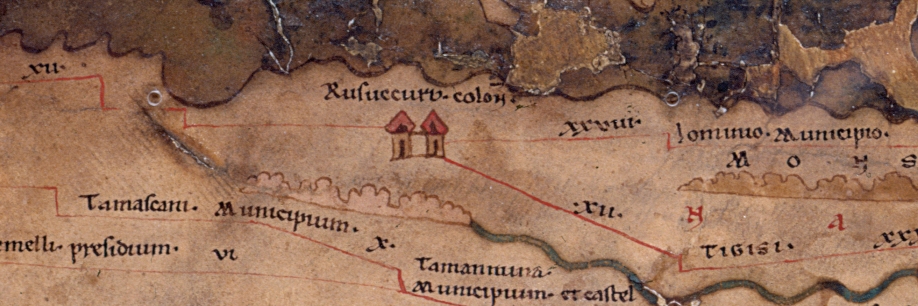 xii·
Rusuccuru·colon·
xxviii·
Iominio·Municipio·
M O N S
Tamascani· Municipium·
·xii·
N A
emelli·presidium· vi x·
Tigisi· xxx
Tamannuna·
Municipium· et castel